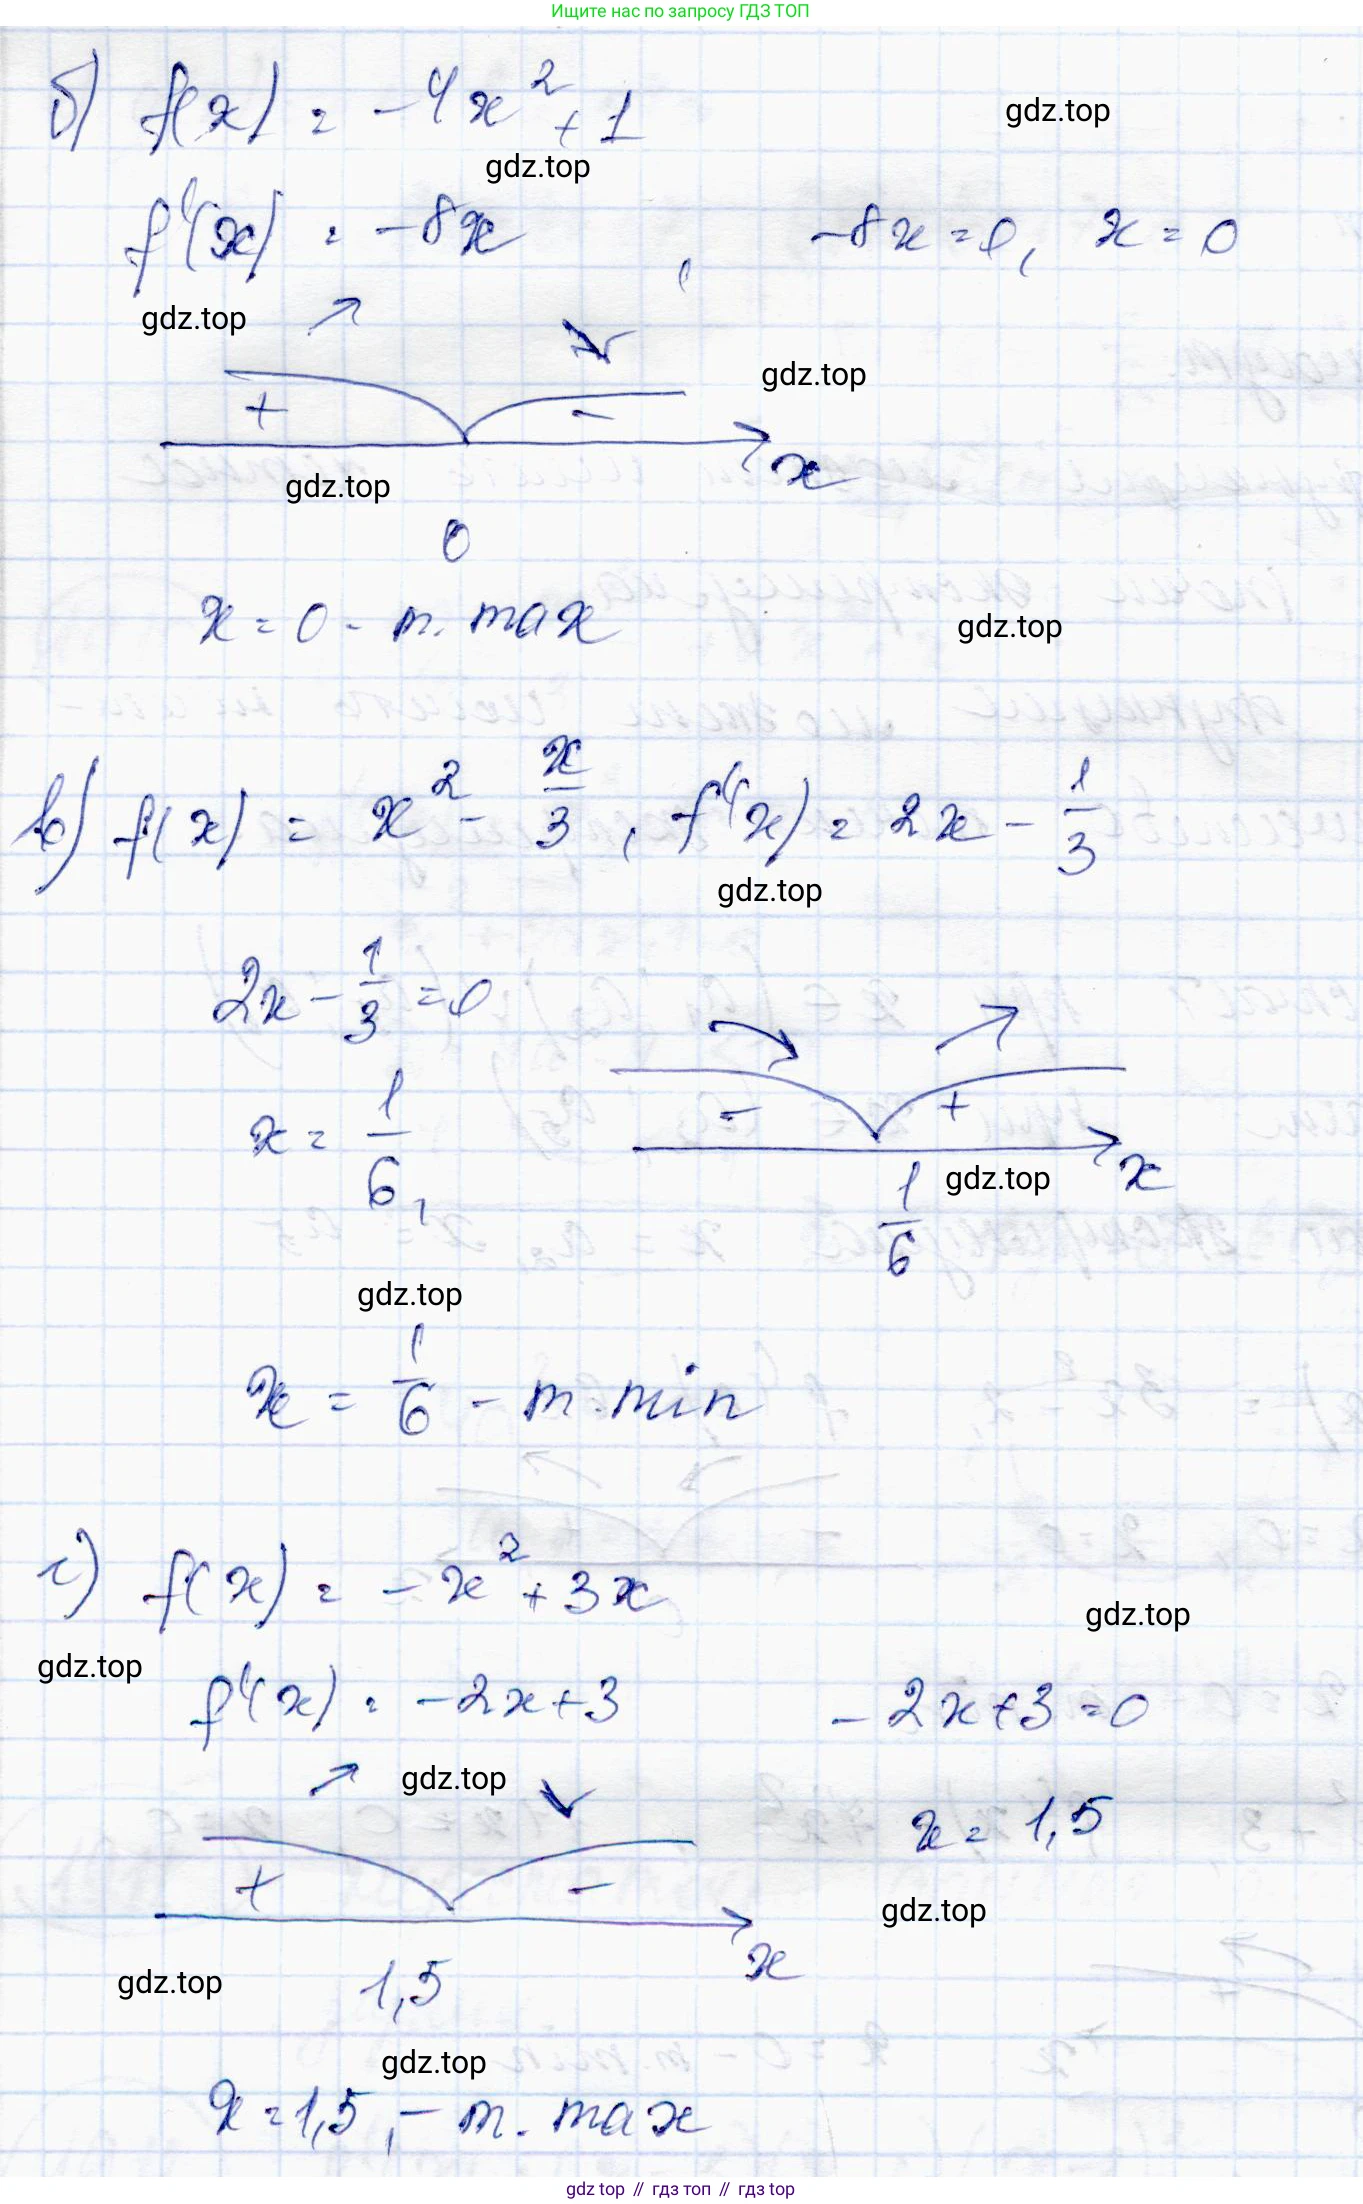 Ищите нас по запросу ГДЗ ТОП
б) f(x) = -4x² + 1
gdz.top
gdz.top
f'(x) = -8x, -8x = 0, x = 0
gdz.top
gdz.top
+ -
x
gdz.top
0
x = 0 - т. max
gdz.top
в) f(x) = x² - x/3, f'(x) = 2x - 1/3
gdz.top
2x - 1/3 = 0
- +
x = 1/6,
x
gdz.top
1/6
gdz.top
x = 1/6 - т. min
г) f(x) = -x² + 3x
gdz.top
gdz.top
f'(x) = -2x + 3 -2x + 3 = 0
gdz.top
x = 1,5
+ -
gdz.top
x
gdz.top
1,5
gdz.top
x = 1,5, - т. max
gdz.top // гдз топ // гдз top